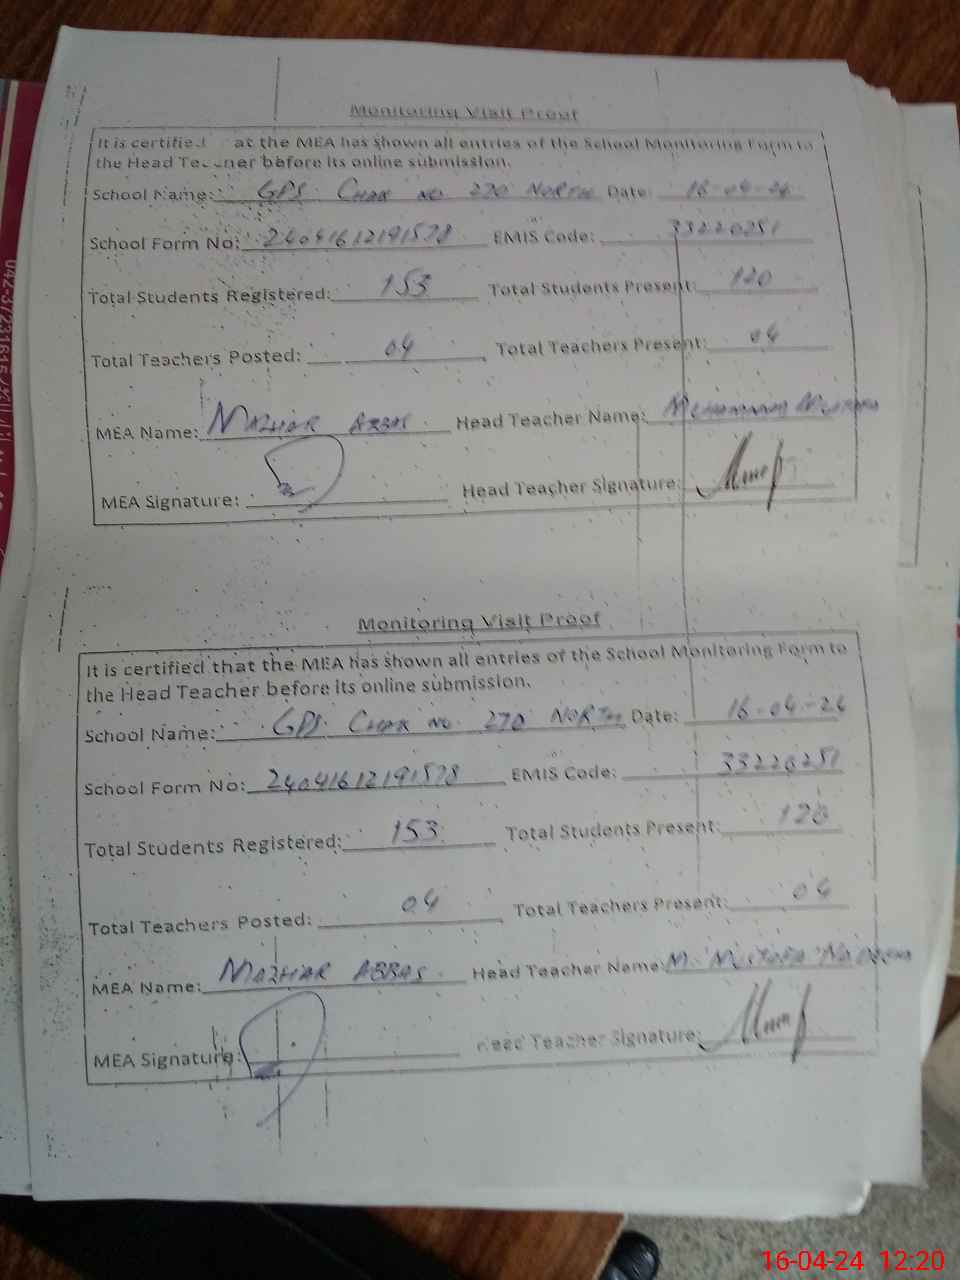 Monitoring Visit Proof
It is certified at the MEA has shown all entries of the School Monitoring Form to
the Head Teacher before its online submission.
School Name: GPS Chak no 270 North Date: 16-04-24
School Form No: 24041612191578 EMIS Code: 33220251
Total Students Registered: 153 Total Students Present: 120
Total Teachers Posted: 04 Total Teachers Present: 04
MEA Name: Mazhar Abbas Head Teacher Name: Muhammad Mustafa
MEA Signature: Head Teacher Signature:
Monitoring Visit Proof
It is certified that the MEA has shown all entries of the School Monitoring Form to
the Head Teacher before its online submission.
School Name: GPS Chak no. 270 North Date: 16-04-24
School Form No: 24041612191578 EMIS Code: 33220251
Total Students Registered: 153 Total Students Present: 120
Total Teachers Posted: 04 Total Teachers Present: 04
MEA Name: Mazhar Abbas Head Teacher Name: M. Mustafa
MEA Signature: Head Teacher Signature:
16-04-24 12:20